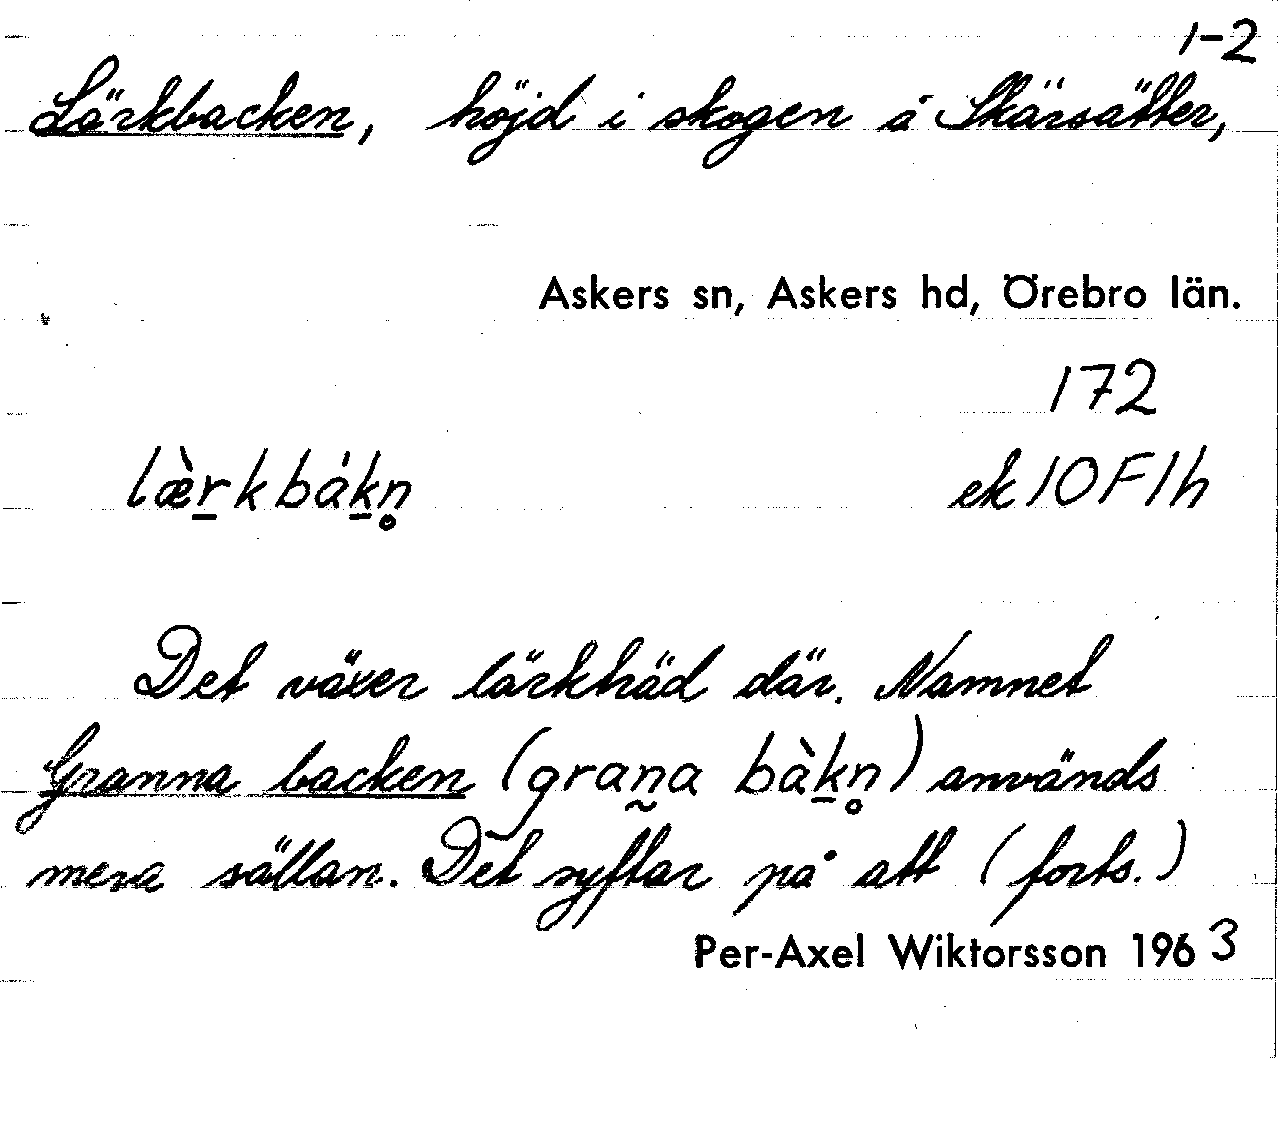 1-2
Lärkbacken, höjd i skogen å Skärsätter,
Askers sn, Askers hd, Örebro län.
172
læ̀r̠kbák̠n̥ ek 10F1h
Det växer lärkträd där. Namnet
Granna backen (gran̰a bàk̠n̥) används
mera sällan. Det syftar på att (forts.)
Per-Axel Wiktorsson 1963